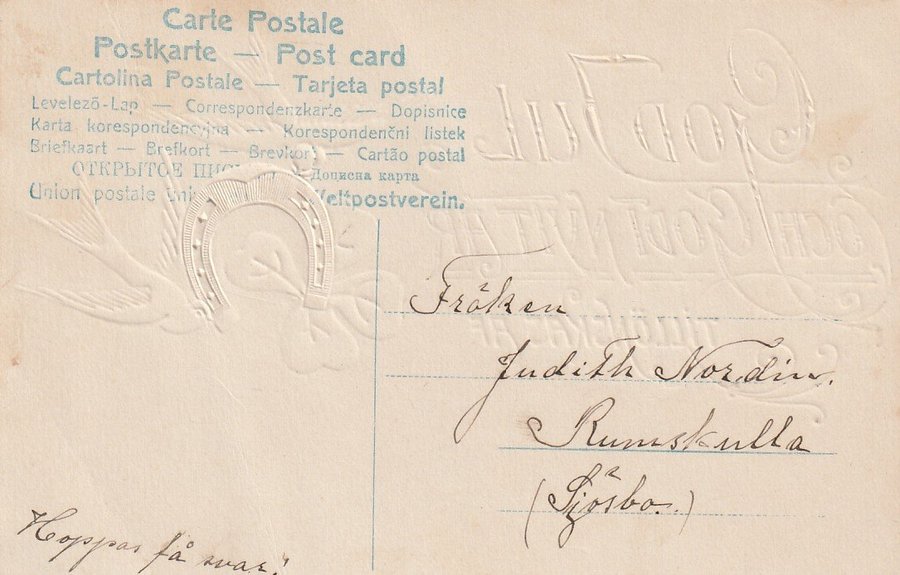 Carte Postale
Postkarte — Post card
Cartolina Postale — Tarjeta postal
Levelező-Lap — Correspondenzkarte — Dopisnice
Karta korespondencyjna — Korespondenční listek
Briefkaart — Brefkort — Brevkort — Cartão postal
ОТКРЫТОЕ Дописна карта
Union postale Weltpostverein.
GOD JUL
OCH GODT NYTT ÅR
TILLÖNSKAS AF
Fröken
Judith Nordin.
Rumskulla
(Sjösbo.)
Hoppas få svar!